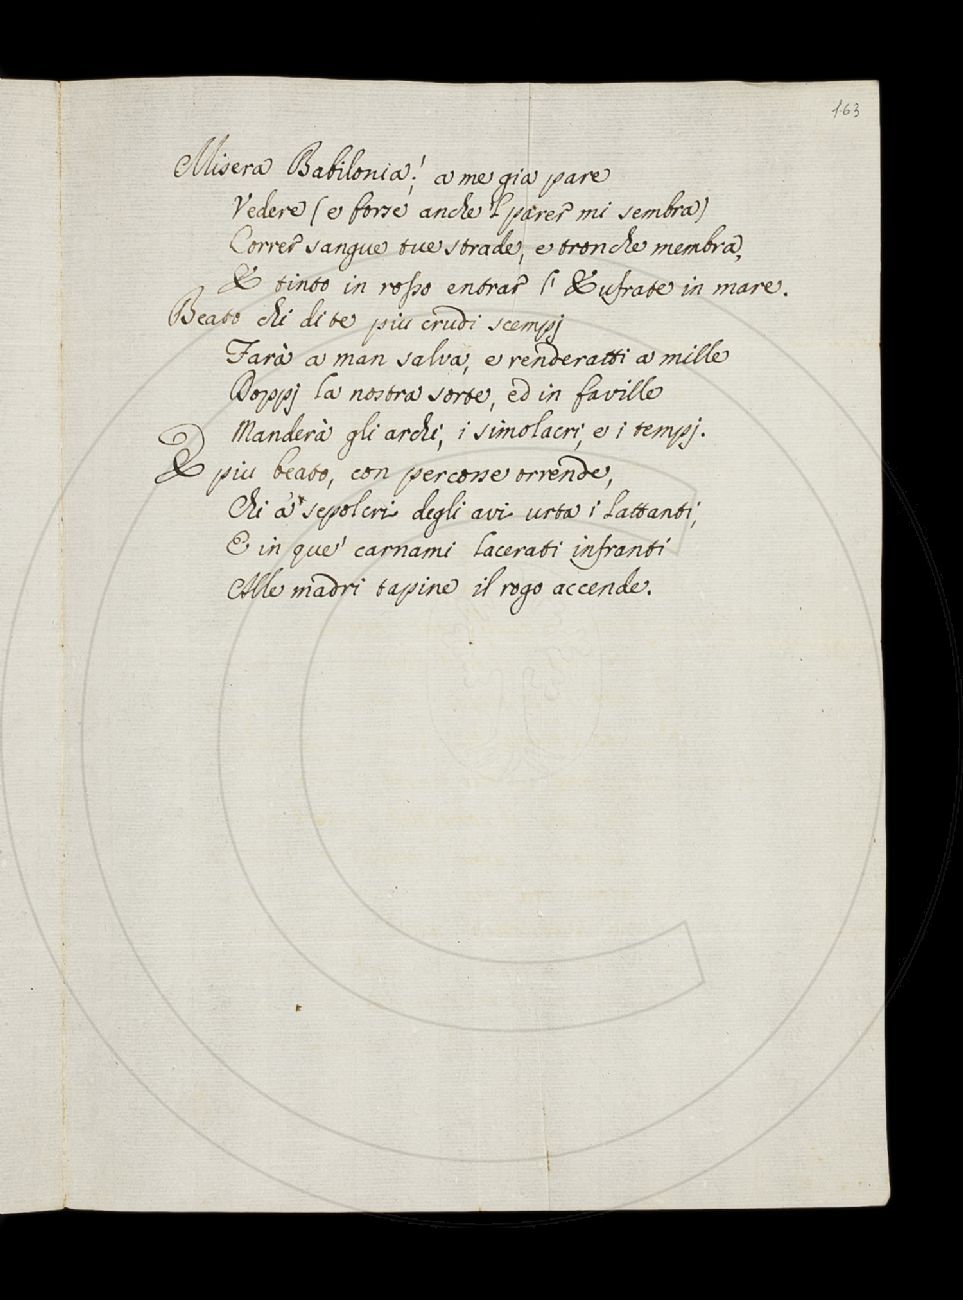 163
Misera Babilonia! a me gia pare
Vedere (e forse anche 'l parer mi sembra)
Correr sangue tue strade, e tronche membra,
E tinto in rosso entrar l' Eufrate in mare.
Beato chi di te piu crudi scempj
Farà a man salva, e renderatti a mille
Doppj la nostra sorte, ed in faville
Manderà gli archi, i simolacri, e i tempj.
E piu beato, con percosse orrende,
Chi a' sepolcri degli avi urta i lattanti,
E in que' carnami lacerati infranti
Alle madri tapine il rogo accende.